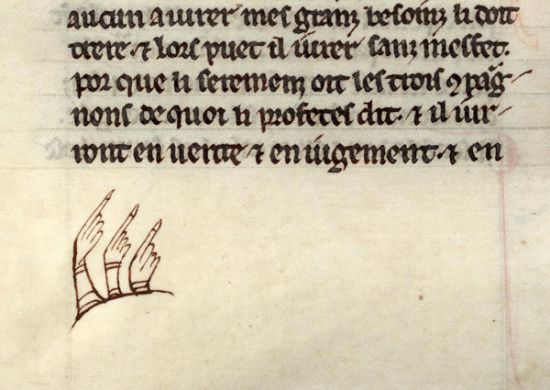 aucun a iurer mes granz besoinz li doit
trere. ⁊ lors puet il iurer sanz mesfet.
por que li seremenz oit les trois ꝯpāg-
nons de quoi li profetes dit. ⁊ il iur-
ront en uerite ⁊ en iugement. ⁊ en